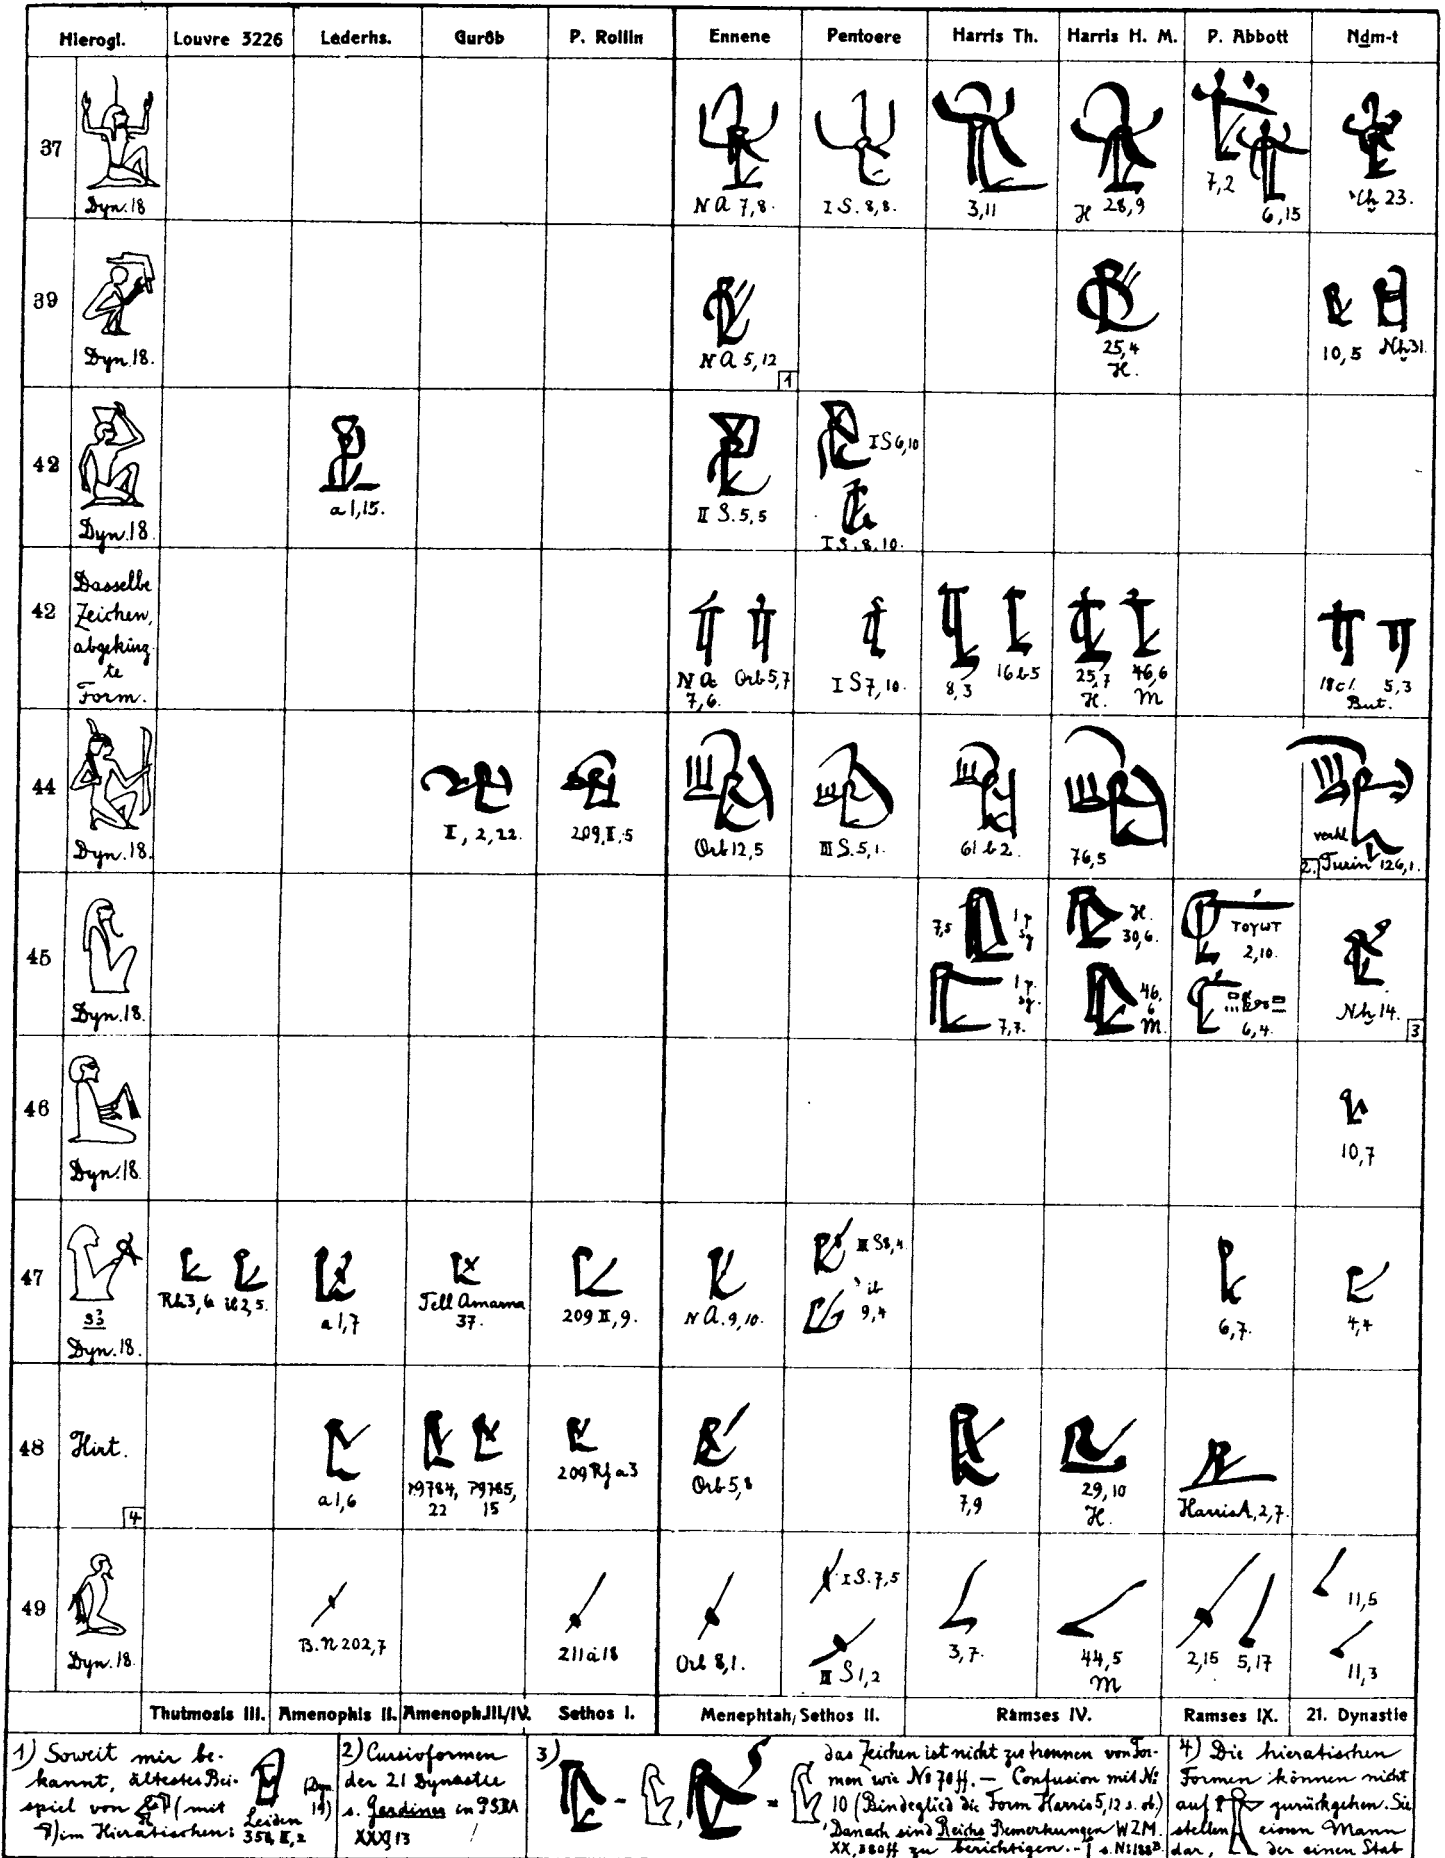 Hierogl. Louvre 3226 Lederhs. Gurôb P. Rollin Ennene Pentoere Harris Th. Harris H. M. P. Abbott Ndm-t
37
Dyn. 18
N A 7,8. I S. 8,8. 3,11 H 28,9 7,2 6,15 23.
39
Dyn. 18.
N A 5,12 25,4 10,5 Nḫ 31.
1 H.
42
Dyn. 18
a 1,15. II S. 5,5 I S 6,10
I S. 8,10.
42 Dasselbe
Zeichen,
abgekürz
te
Form.
N A 7,6. Orb 5,7 I S 7,10. 8,3 16 b 5 25,7 H. 46,6 M 18 c l. 5,3
But.
44
Dyn. 18.
II, 2,22. 209, II, 5 Orb 12,5 III S. 5,1. 61 b 2. 76,5
2. Turin 126,1.
45
Dyn. 18.
7,5 1 p sg H. 30,6. ΤΟΥωΤ 2,10.
1 p. sg. 7,7. 46, 6 M. 6,4. Nḫ 14. 3
46
Dyn. 18.
10,7
47
s3
Dyn. 18.
Rh 3,6 2,5. a 1,7 Tell Amarna 37. 209 II, 9. N A. 9,10. III S 8,4. ib 9,4 6,7. 4,4
48 Hirt.
4
a 1,6 P9784, 22 P9785, 15 209 Rf a 3 Orb 5,8 7,9 29,10 H. Harris A, 2,7.
49
Dyn. 18.
B. N 202,7 211 a 18 Orb 8,1. I S. 7,5 II S 1,2 3,7. 44,5 M 2,15 5,17 11,5 11,3
Thutmosis III. Amenophis II. Amenoph. III/IV. Sethos I. Menephtah/Sethos II. Ramses IV. Ramses IX. 21. Dynastie
1) Soweit mir be-
kannt, ältestes Bei-
spiel von (mit
) im Hieratischen:
Leiden
(Dyn. 19)
2) Cursivformen
der 21 Dynastie
s. Gardiner in PSBA
3)
das Zeichen ist nicht zu trennen von For-
men wie No 70ff. — Confusion mit No
10 (Bindeglied die Form Harris 5,12 s. ob.)
Danach sind Reichs Bemerkungen WZM
XX, zu berichtigen.
4) Die hieratischen
Formen können nicht
auf zurückgehen. Sie
stellen einen Mann
dar, der einen Stab